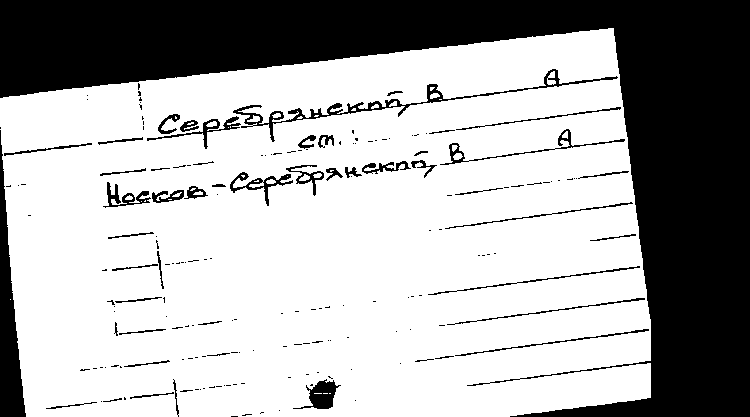 Серебрянский, В А
см.:
Носков-Серебрянский, В А